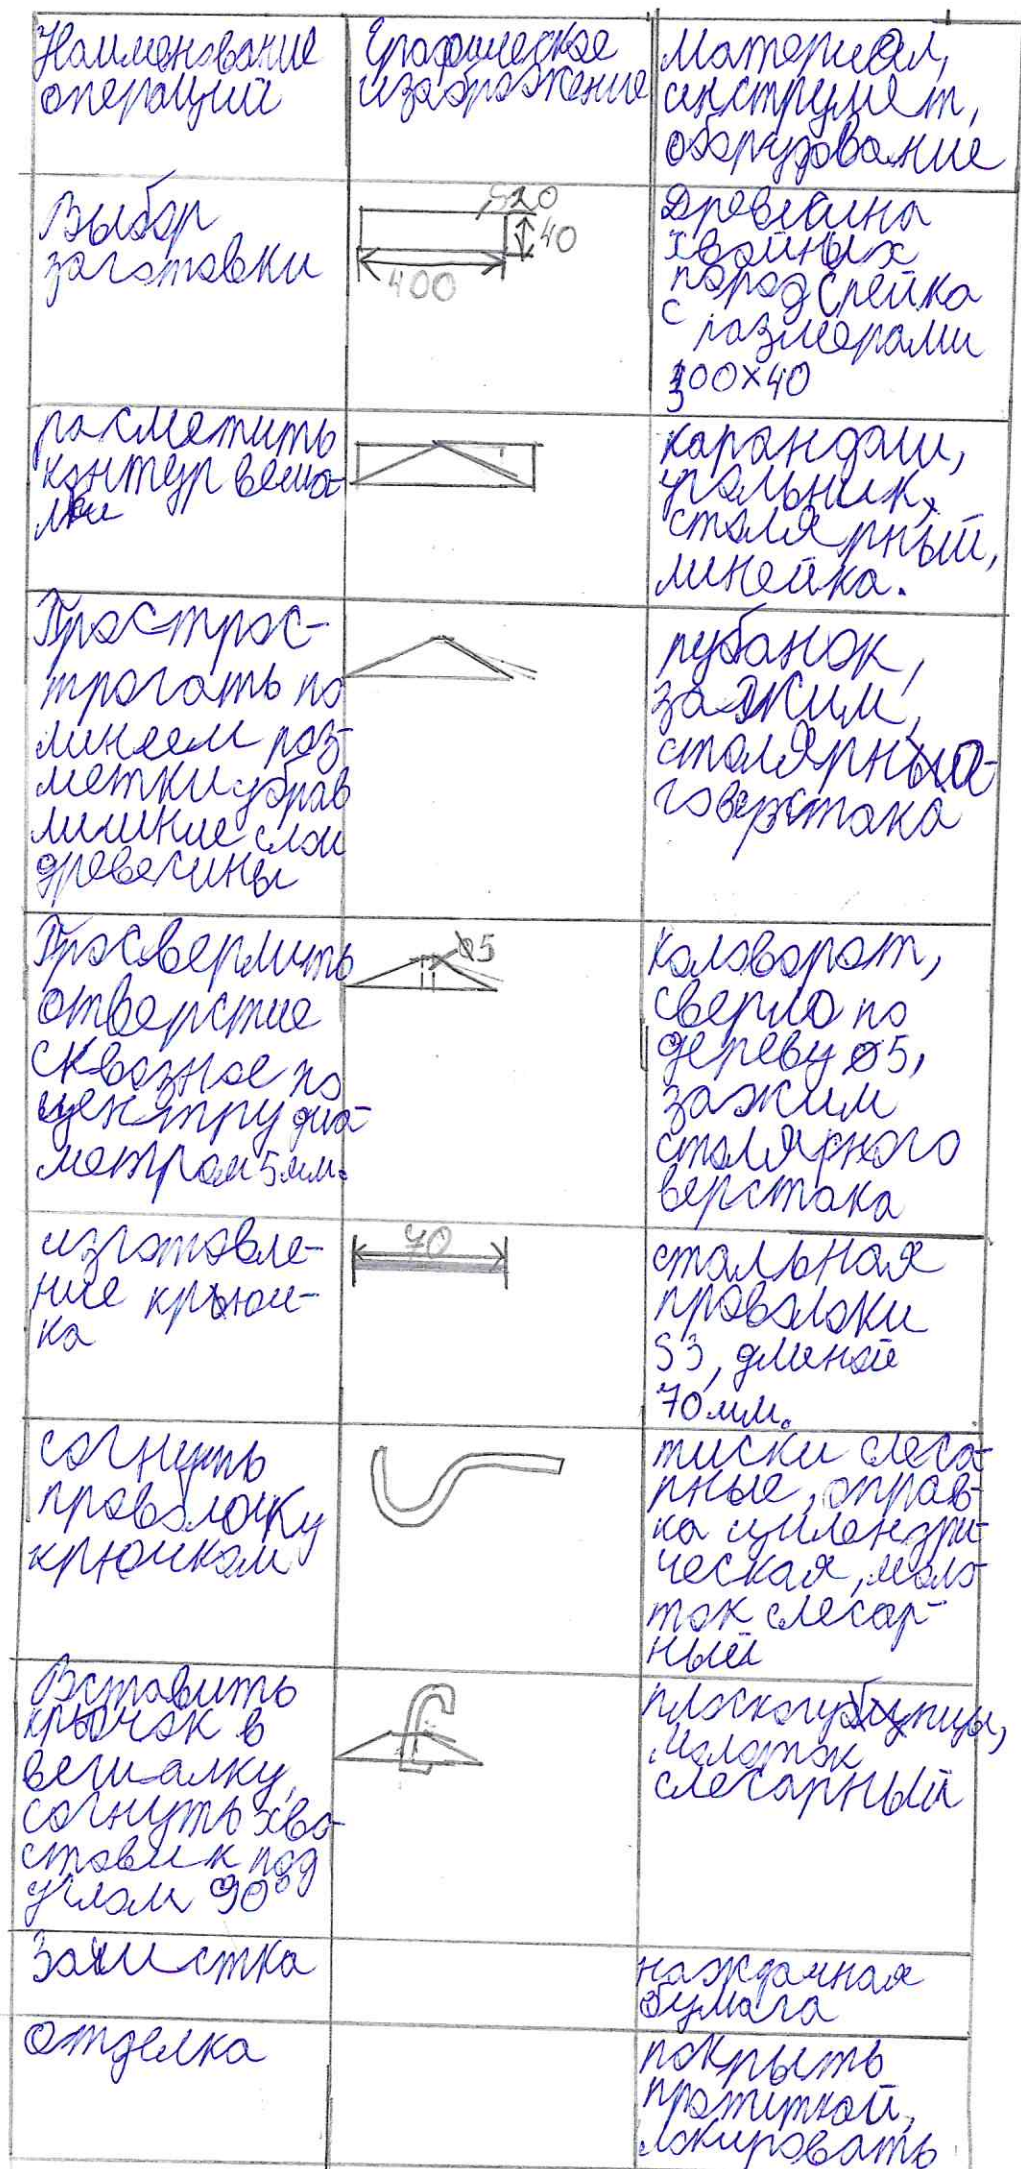 Наименование
операций
Графическое
изображение
Материал,
инструмент,
оборудование
Выбор
заготовки
S20
40
400
Древесина
хвойных
пород, рейка
с размерами
400х40
разметить
контур веша-
лки
карандаш,
угольник,
столярный,
линейка.
Простро-
трогать по
линеем раз-
метки убрав
лишние слои
древесины
рубанок,
зажим,
столярно-
говерстака
Просверлить
отверстие
сквозное по
центру диа-
метром 5мм.
⌀5
Коловорот,
сверло по
дереву ⌀5,
зажим
столярного
верстака
изготовле-
ние крюч-
ка
70
стальная
проволоки
S3, длиной
70мм.
согнуть
проволочку
крючком
тиски слеса-
рные, оправ-
ка цилендри-
ческая, моло-
ток слесар-
ный
Вставить
крючок в
вешалку,
согнуть хво-
стовик под
углом 90°
плоскогубцы,
молоток
слесарный
Зачистка
наждачная
бумага
отделка
покрыть
протиткой,
локировать